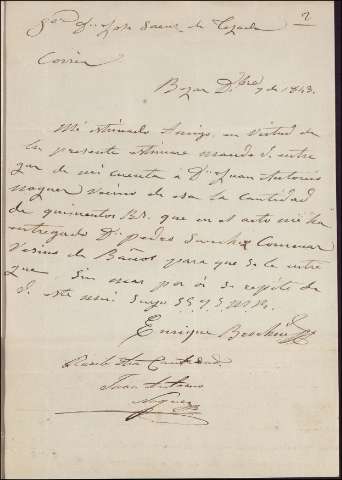 Sor. Dn. Jose Saenz de Tejada 2
Coria
Bejar Dbre. 7 de 1843.
Mi estimado Amigo, en virtud de
la presente estimare mande V. entre
gar de mi cuenta a Dn. Juan Antonio
Noguer Vecino de esa la cantidad
de quinientos Rs. que en el acto me ha
entregado Dn. Pedro Sanchez
Vecino de Baños para que se le entre
gue. Sin mas por oi se repite de
V. este mui Suyo SS q S. M. B.
Enrique
Recibi esta Cantidad.
Juan Antonio
Noguer